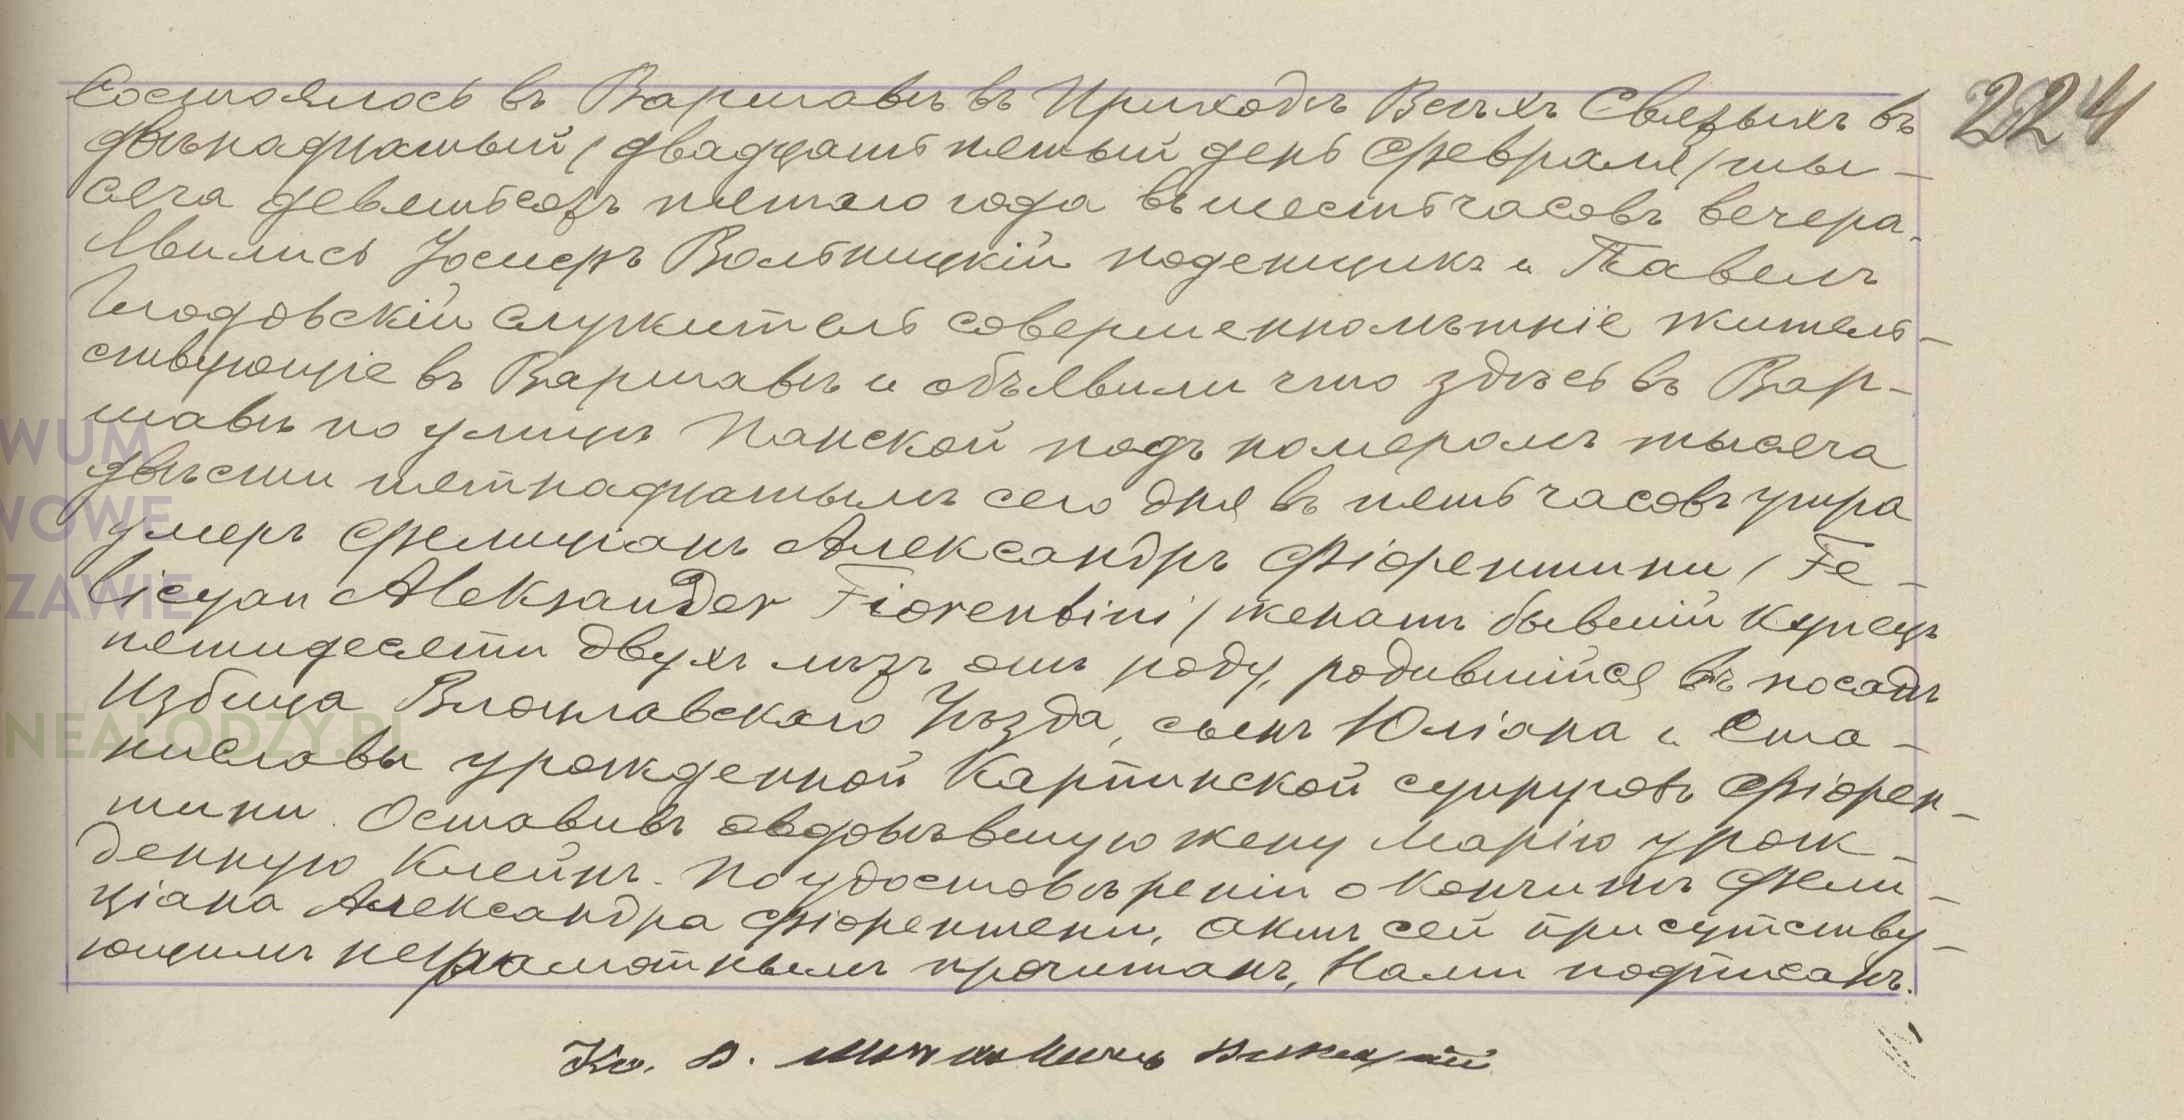 Состоялось въ Варшавѣ въ Приходѣ Всѣхъ Святыхъ въ
двѣнадцатый / двадцать пятый день Февраля / ты-
сяча девятьсотъ пятаго года въ шесть часовъ вечера.
Явились Іосифъ Вольницкій поденщикъ и Павелъ
служитель совершеннолѣтніе житель-
ствующіе въ Варшавѣ и объявили что здѣсь въ Вар-
шавѣ по улицѣ Панской подъ номеромъ тысяча
двѣсти пятнадцатымъ сего дня въ пять часовъ утра
умеръ Фелиціанъ Александръ Фіорентини / Fe-
licyan Aleksander Fiorentini / женатъ бывшій купецъ
пятидесяти двухъ лѣтъ отъ роду, родившійся въ посадѣ
Избица Влоцлавскаго Уѣзда, сынъ Юліана и Ста-
ниславы урожденной Карпинской супруговъ Фіорен-
тини. Оставивъ овдовѣвшую жену Марію урож-
денную Клейнъ. По удостовѣреніи о кончинѣ Фели-
ціана Александра Фіорентени, актъ сей присутству-
ющимъ неграмотнымъ прочитанъ, Нами подписанъ.
Кс. В.
224
WUM
WOWE
ZAWIE
NEALODZY.PL